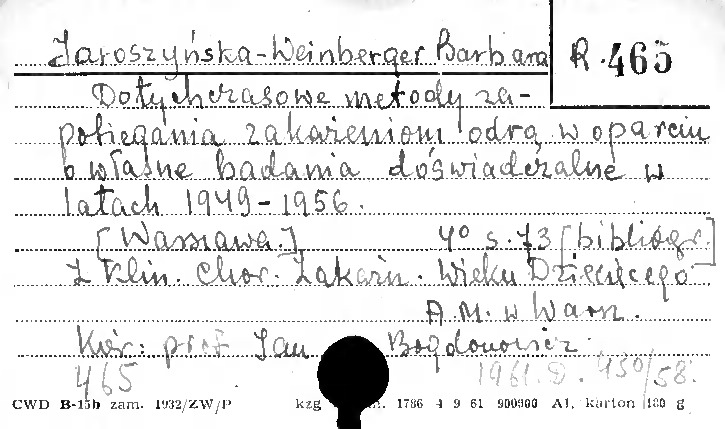 Jaroszyńska-Weinberger Barbara R.465
Dotychczasowe metody za-
pobiegania zakażeniom odrą w oparciu
o własne badania doświadczalne w
latach 1949-1956.
[Warszawa.] 4° s. 73 [bibliogr.]
Z Klin. Chor. Zakaźn. Wieku Dziecięcego
A.M. w Warsz.
Kier: prof Jan Bogdanowicz.
465 1961.D. 430/58.
CWD B-15b zam. 1932/ZW/P kzg 1786 4 9 61 900900 A1, karton 180 g